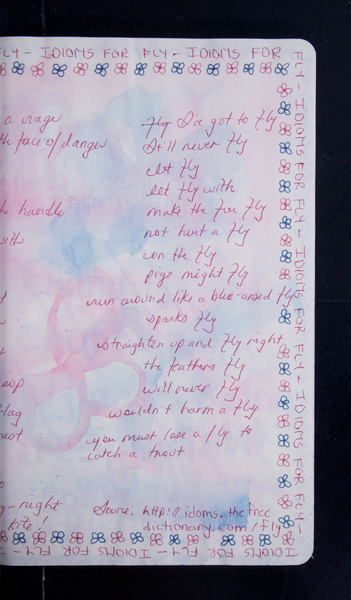 FLY - IDIOMS FOR FLY - IDIOMS FOR
FLY - IDIOMS FOR FLY - IDIOMS FOR FLY - IDIOMS FOR FLY -
a rage
the face of danger
the handle
with
flag
y-right
kite!
Fly I've got to fly
It'll never fly
let fly
let fly with
make the fur fly
not hurt a fly
on the fly
pigs might fly
run around like a blue-arsed fly
sparks fly
straighten up and fly right
the feathers fly
will never fly
wouldn't harm a fly
you must lose a fly to
catch a trout
Source. http://idioms.thefree
dictionary.com/fly
IDIOMS FOR FLY - IDIOMS FOR FLY - IDIOMS